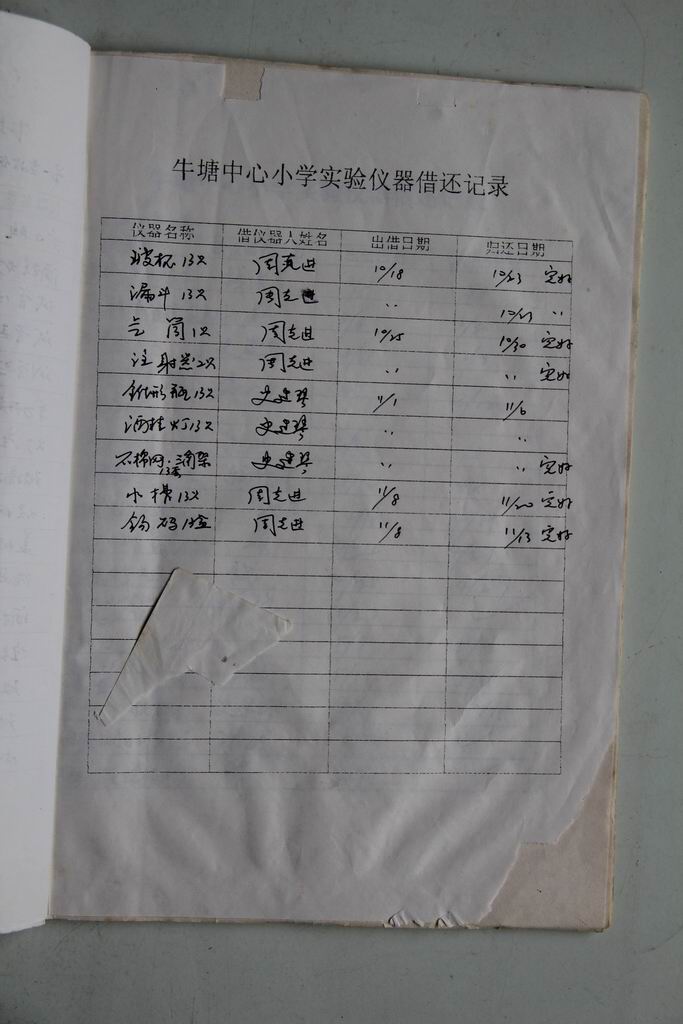 牛塘中心小学实验仪器借还记录
仪器名称 借仪器人姓名 出借日期 归还日期
烧杯13只 周克进 10/18 10/23 完好
漏斗13只 周克进 〃 10/23 〃
气筒1只 周克进 10/25 10/30 完好
注射器12只 周克进 〃 〃 完好
锥形瓶13只 史建琴 11/1 11/6
酒精灯13只 史建琴 〃 〃
石棉网·三角架13套 史建琴 〃 〃 完好
小槽13只 周克进 11/8 11/20 完好
钩码13盒 周克进 11/8 11/13 完好